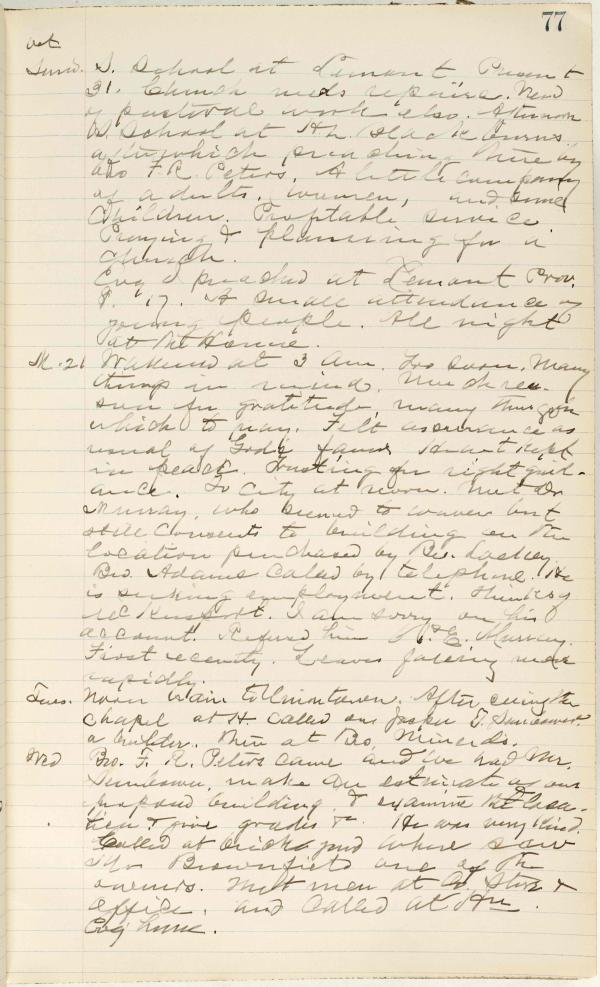 77
Oct
Sund. S. School at Lemont. Present
31. Church needs repairs. Need
of pastoral work also. Afternoon
S. School at
after which preaching there by
Bro F. R. Peters. A little company
of adults, women, and some
Children. Profitable service.
Praying & planning for a
church.
Evg I preached at Lemont Prov.
8. 17. A small attendance of
young people. All night
at the Home.
M. 21 Wakened at 3 Am. Too soon. Many
things in mind. Much rea-
son for gratitude, many things for
which to pray. Felt assurance as
usual of God's favor. Heart kept
in peace. Trusting for right guid-
ance. To City at noon. Met Dr
Murray, who seemed to waver but
still consents to building on the
location purchased by Rev.
Bro. Adams called by telephone. He
is seeking employment. Thinks of
McKeesport. I am sorry on his
account. Refered him to E. Murray.
First recently. Leaves falling now
rapidly.
Tues. Noon train to Uniontown. After seeing the
chapel at H called on Jasper T.
a builder. Then at Bo.
Wed Bro. F. R. Peters came and we had Mr.
make an estimate of our
proposed building, & examine the loca-
tion & give grades &c. He was very kind.
Called at brick yard where saw
Mr Brownfield one of the
owners. Met men at Co. Store &
office. and called at
Evg home.